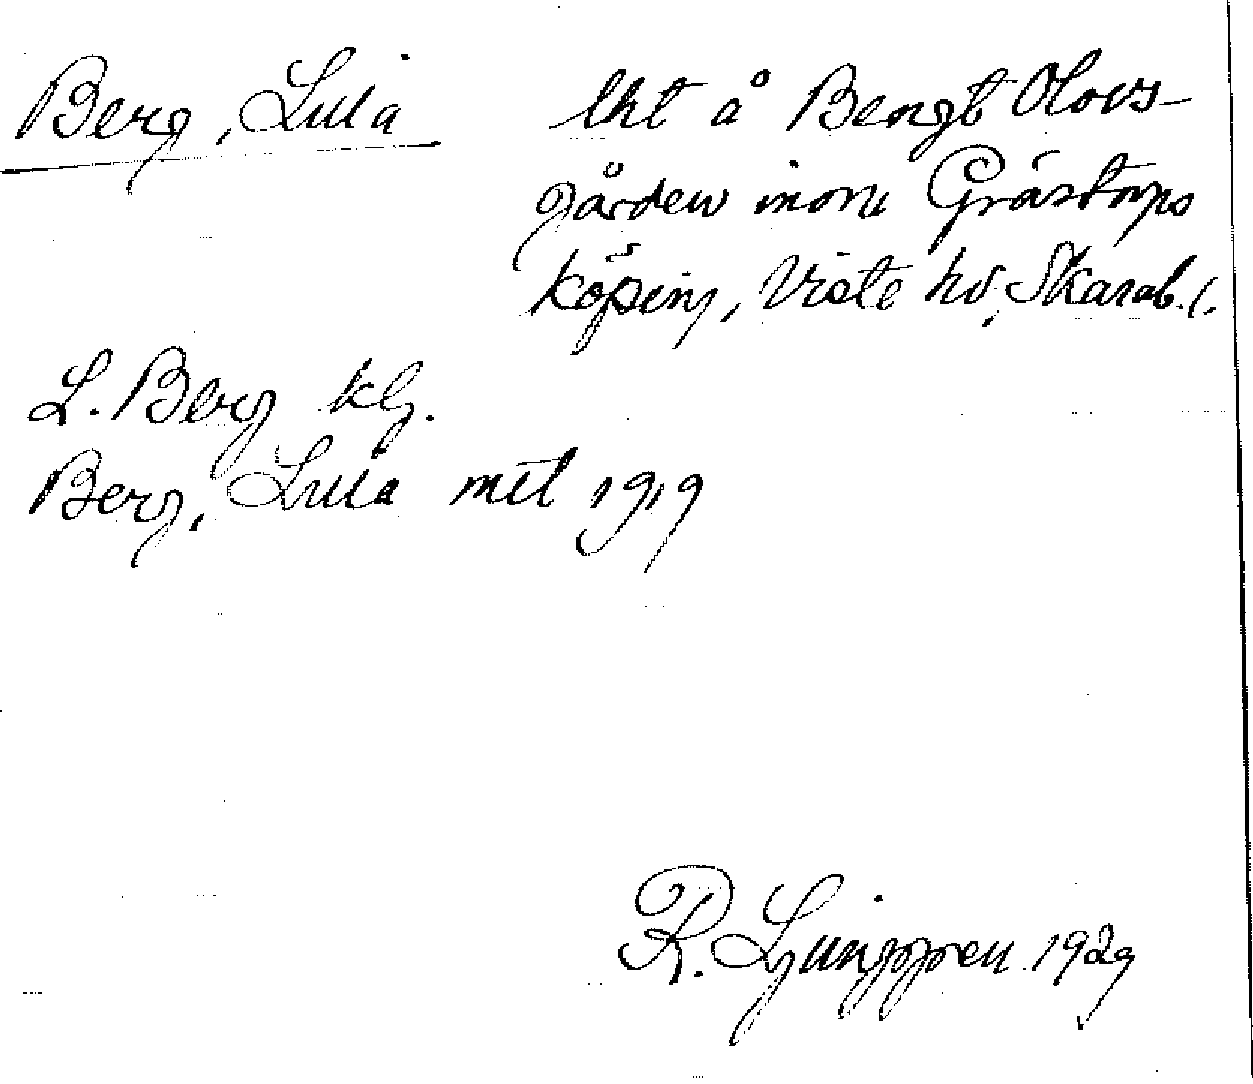 Berg, Lilla
lht å Bengt Olovs-
gården inom Grästorps
köping, Viste hd, Skarab. l.
L. Berg klg.
Berg, Lilla mtl 1919
R. Ljunggren 1929